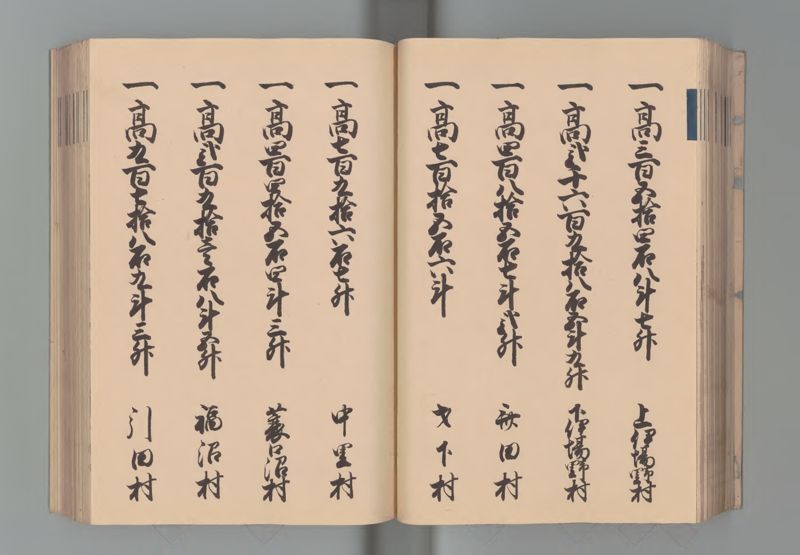 一高三百五拾四石八斗七升 上伊場野村
一高弐千六百九拾八石五斗九升 下伊場野村
一高四百八拾五石七斗弐升 舟田村
一高七百拾五石六斗 大下村
一高七百九拾六石七升 中里村
一高四百四拾五石四斗三升 蓑口沼村
一高弐百九拾壱石八斗五升 福沼村
一高九百七拾八石九斗三升 引田村